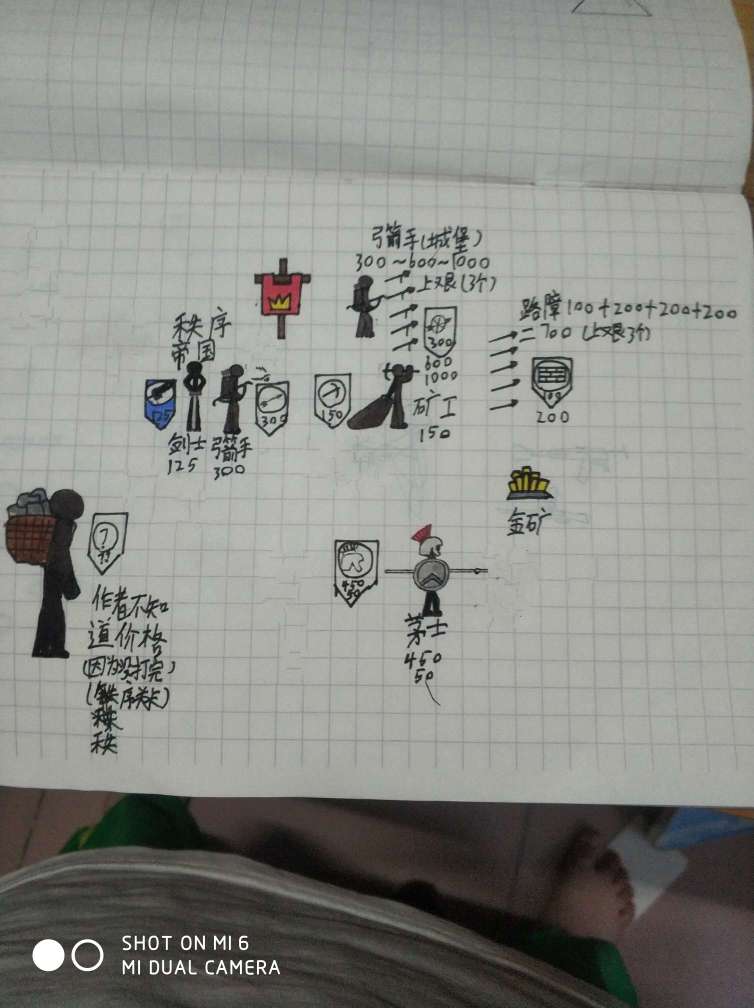 弓箭手(城堡)
300～600～1000
上艰(3个)
300
600
1000
路障100+200+200+200
=700(上艰3个)
100
200
秩序
帝国
125
剑士
125
弓箭手
300
300
150
矿工
150
金矿
?
??
作者不知
道价格
(因为没打完)
秩序关卡)
秩
450
50
茅士
450
50
SHOT ON MI 6
MI DUAL CAMERA